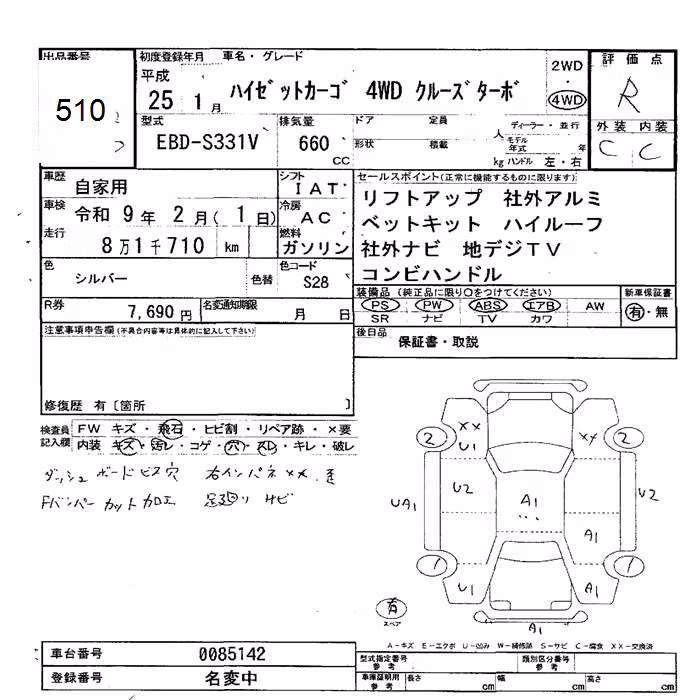 出品番号 初度登録年月 車名・グレード 評価点
510
平成 25 1月 ハイゼットカーゴ 4WD クルーズターボ
2WD
・
4WD
R
型式 排気量 ドア 定員 人 ディーラー・並行
EBD-S331V 660 cc 形状 積載 kg モデル年式 年
ハンドル 左・右
外装 内装
C C
車歴 自家用 シフト IAT
セールスポイント(正常に機能するものに限ります)
リフトアップ 社外アルミ
ベットキット ハイルーフ
社外ナビ 地デジTV
コンビハンドル
車検 令和 9年 2月(1日) 冷房 AC
走行 8万1千710 km 燃料 ガソリン
色 シルバー 色替 色コード S28
装備品(純正品に限り○をつけてください) 新車保証書
PS PW ABS エアB AW 有・無
SR ナビ TV カワ
R券 7,690円 名変通知期限 月 日
後日品 保証書・取説
注意事項申告欄(不具合内容等は具体的に記入して下さい)
修復歴 有〔箇所 〕
検査員記入欄 FW キズ・飛石・ヒビ割・リペア跡・×要
内装 キズ・汚レ・コゲ・穴・スレ・キレ・破レ
ダッシュボードビス穴 右インパネ××
Fバンパーカット加工 足廻りサビ
2 ×× U1 ×× 2
UA1 U2 A1 U2
A1
1 U1 A1 1
有 スペア A1
A-キズ E-エクボ U-凹み W-補修跡 S-サビ C-腐食 XX-交換済
車台番号 0085142
登録番号 名変中
型式指定番号 参考 類別区分番号 参考
車庫証明用 参考 長さ cm 幅 cm 高さ cm